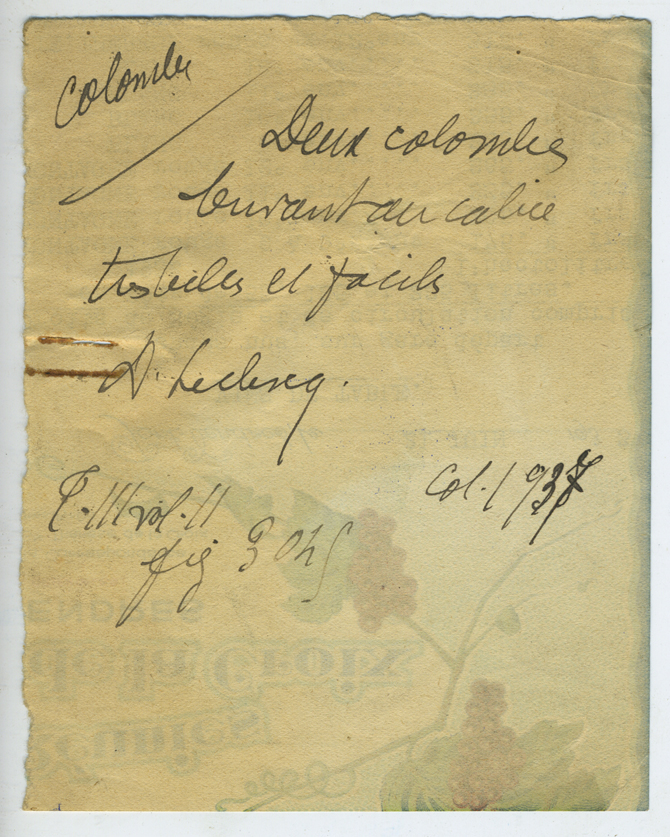 Colombe
Deux colombes
buvant au calice
très belles et faciles
D. Leclercq.
T. III vol. II
fig 3045
Col. 1937